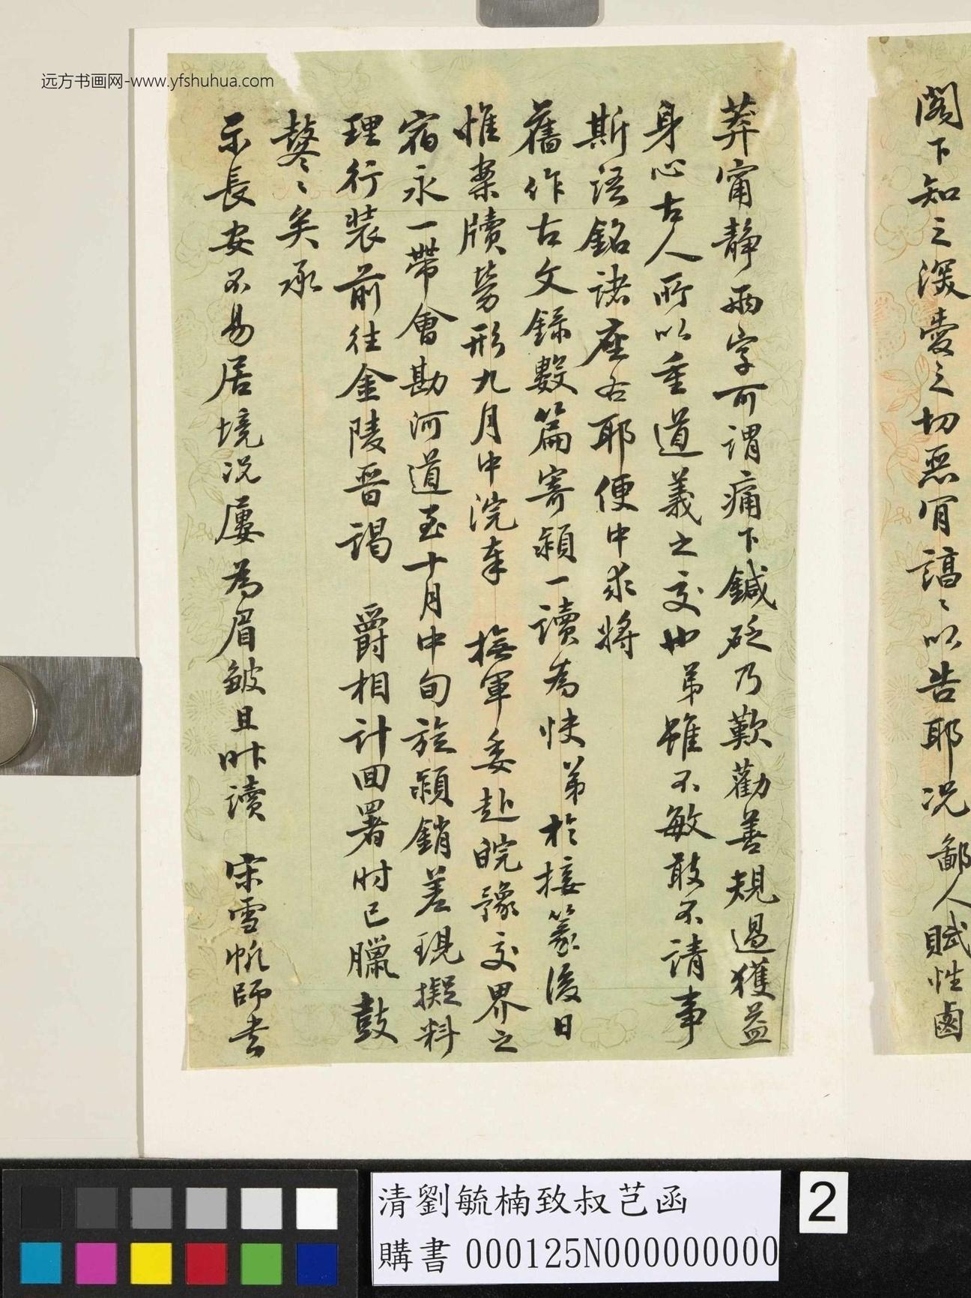 远方书画网-www.yfshuhua.com
閣下知之深愛之切惡肎諄諄以告耶况鄙人賦性鹵
莽甯靜兩字可謂痛下鍼砭乃歎勸善規過獲益
身心古人所以重道義之交也弟雖不敏敢不請事
斯語銘諸座右耶便中求將
舊作古文錄數篇寄潁一讀為快弟於接篆後日
惟案牘勞形九月中浣奉 撫軍委赴皖豫交界之
宿永一帶會勘河道至十月中旬旋潁銷差現擬料
理行裝前往金陵晉謁 爵相計回署时已臘鼓
鼕〻矣承
示長安不易居境况屢為眉皺且昨讀 宋雪帆師去
清劉毓楠致叔芑函
購書 000125N000000000
2